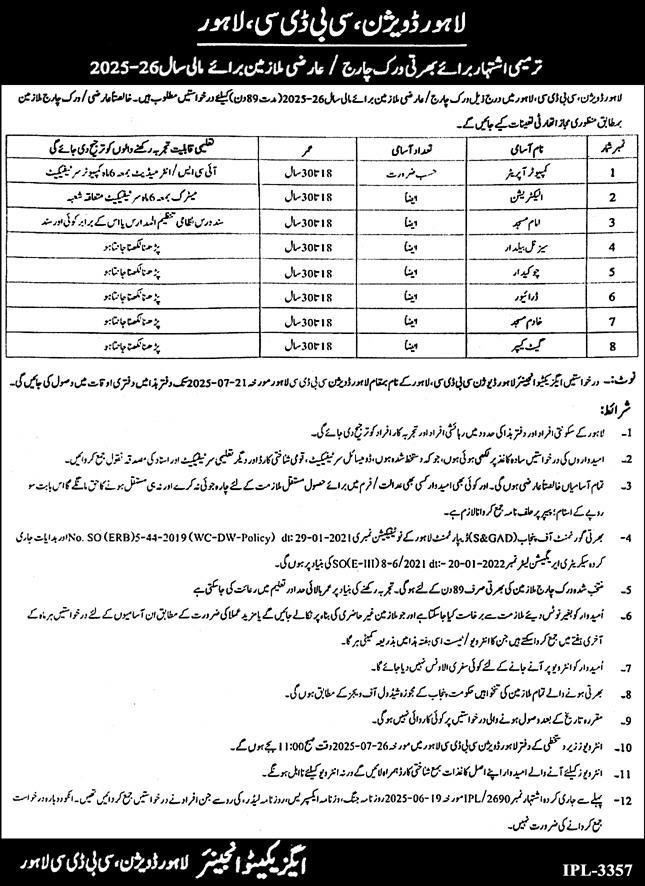 لاہور ڈویژن، سی بی ڈی سی، لاہور
ترمیمی اشتہار برائے بھرتی ورک چارج / عارضی ملازمین برائے مالی سال 26-2025
لاہور ڈویژن، سی بی ڈی سی، لاہور میں درج ذیل ورک چارج / عارضی ملازمین برائے مالی سال 26-2025 (مدت 89 دن) کیلئے درخواستیں مطلوب ہیں۔ خالصتاً عارضی / ورک چارج ملازمین
بمطابق منظوری مجاز اتھارٹی تعینات کیے جائیں گے۔
نمبر شمار نام آسامی تعداد آسامی عمر تعلیمی قابلیت تجربہ رکھنے والوں کو ترجیح دی جائے گی
1 کمپیوٹر آپریٹر حسب ضرورت 18 تا 30 سال آئی سی ایس / انٹر میڈیٹ بمعہ 6 ماہ کمپیوٹر سرٹیفکیٹ
2 الیکٹریشن ایضاً 18 تا 30 سال میٹرک بمعہ 6 ماہ سرٹیفکیٹ متعلقہ شعبہ
3 امام مسجد ایضاً 18 تا 30 سال سند درس نظامی تنظیم المدارس یا اس کے برابر کوئی اور سند
4 سیزنل بیلدار ایضاً 18 تا 30 سال پڑھنا لکھنا جانتا ہو
5 چوکیدار ایضاً 18 تا 30 سال پڑھنا لکھنا جانتا ہو
6 ڈرائیور ایضاً 18 تا 30 سال پڑھنا لکھنا جانتا ہو
7 خادم مسجد ایضاً 18 تا 30 سال پڑھنا لکھنا جانتا ہو
8 گیٹ کیپر ایضاً 18 تا 30 سال پڑھنا لکھنا جانتا ہو
نوٹ:۔ درخواستیں ایگزیکٹو انجینئر لاہور ڈویژن سی بی ڈی سی، لاہور کے نام بمقام لاہور ڈویژن سی بی ڈی سی لاہور مورخہ 21-07-2025 تک دفتر ہذا میں دفتری اوقات میں وصول کی جائیں گی۔
شرائط:
1۔ لاہور کے سکونتی افراد اور دفتر ہذا کی حدود میں رہائشی افراد اور تجربہ کار افراد کو ترجیح دی جائے گی۔
2۔ امیدواروں کی درخواستیں سادہ کاغذ پر لکھی ہوئی ہوں، جو کہ دستخط شدہ ہوں، ڈومیسائل سرٹیفکیٹ، قومی شناختی کارڈ اور دیگر تعلیمی سرٹیفکیٹ اور اسناد کی مصدقہ نقول جمع کروائیں۔
3۔ تمام آسامیاں خالصتاً عارضی ہوں گی۔ اور کوئی بھی امیدوار کسی بھی عدالت / فرم میں برائے حصول مستقل ملازمت کے لئے چارہ جوئی نہ کرے اور نہ ہی مستقل ہونے کا حق مانگے گا اس بابت سو
روپے کے اسٹام پیپر پر حلف نامہ جمع کروانا لازم ہے۔
4۔ بھرتی گورنمنٹ آف پنجاب (S&GAD) ڈیپارٹمنٹ لاہور کے نوٹیفکیشن نمبری No. SO (ERB)5-44-2019 (WC-DW-Policy) dt: 29-01-2021 اور ہدایات جاری
کردہ سیکرٹری ایریگیشن لیٹر نمبر SO(E-III) 8-6/2021 dt:- 20-01-2022 کی بنیاد پر ہوں گی۔
5۔ منتخب شدہ ورک چارج ملازمین کی بھرتی صرف 89 دن کے لئے ہو گی۔ تجربہ رکھنے کی بنیاد پر عمر بالائی حد اور تعلیم میں رعائت کی جا سکتی ہے
6۔ اُمیدوار کو بغیر نوٹس دیئے ملازمت سے برخاست کیا جا سکتا ہے اور جو ملازمین غیر حاضری کی بنا پر نکالے جائیں گے یا مزید عملا کی ضرورت کے مطابق ان آسامیوں کے لئے درخواستیں ہر ماہ کے
آخری ہفتے میں جمع کروا سکتے ہیں جن کا انٹرویو / ٹیسٹ اسی ہفتہ دفتر ہذا میں بذریعہ کمیٹی ہو گا۔
7۔ اُمیدوار کو انٹرویو پر آنے جانے کے لئے کوئی سفری الاؤنس نہیں دیا جائے گا۔
8۔ بھرتی ہونے والے تمام ملازمین کی تنخواہیں حکومت پنجاب کے مجوزہ شیڈول آف ویجز کے مطابق ہوں گی۔
9۔ مقررہ تاریخ کے بعد وصول ہونے والی درخواستوں پر کوئی کاروائی نہیں ہو گی۔
10۔ انٹرویو زیر دستخطی کے دفتر لاہور ڈویژن سی بی ڈی سی لاہور میں مورخہ 26-07-2025 وقت صبح 11:00 بجے ہوں گے۔
11۔ انٹرویو کیلئے آنے والے امیدوار اپنے اصل کاغذات بمع شناختی کارڈ ہمراہ لائیں گے ورنہ انٹرویو کیلئے نا اہل ہونگے۔
12۔ پہلے سے جاری کردہ اشتہار نمبر IPL/2690 مورخہ 19-06-2025 روزنامہ جنگ، روزنامہ ایکسپریس، روزنامہ لیڈر، کی رو سے جن افراد نے درخواستیں جمع کروائیں تھیں۔ انکو دوبارہ درخواست
جمع کروانے کی ضرورت نہیں۔
ایگزیکیٹو انجینئر لاہور ڈویژن، سی بی ڈی سی لاہور
IPL-3357